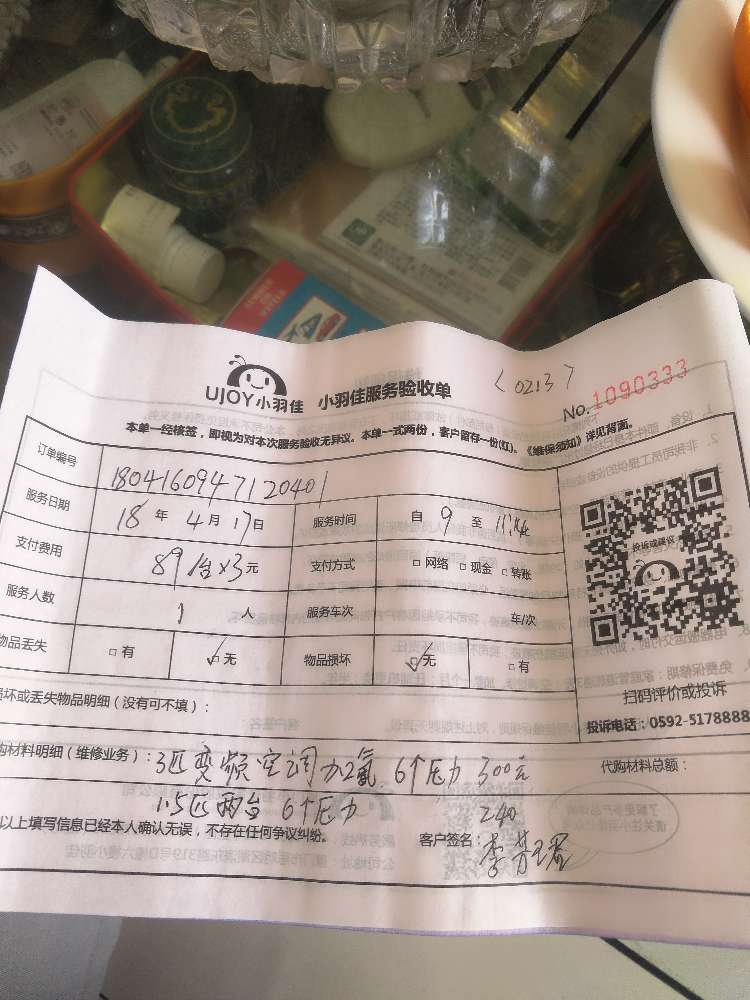 UJOY小羽佳 小羽佳服务验收单
(0213)
No. 1090333
本单一经核签，即视为对本次服务验收无异议。本单一式两份，客户留存一份(红)。《维保须知》详见背面。
订单编号 1804160947120401
服务日期 18年 4月 17日 服务时间 自 9 至
支付费用 89/台×3元 支付方式 □网络 □现金 □转账
服务人数 1 人 服务车次 车/次
物品丢失 □有 ☑无 物品损坏 ☑无 □有
投诉或建议
扫码评价或投诉
投诉电话：0592-5178888
坏或丢失物品明细（没有可不填）：
购材料明细（维修业务）：3匹变频空调加 6个压力 300元 代购材料总额：
1.5匹两台 6个压力 240
以上填写信息已经本人确认无误，不存在任何争议纠纷。 客户签名：